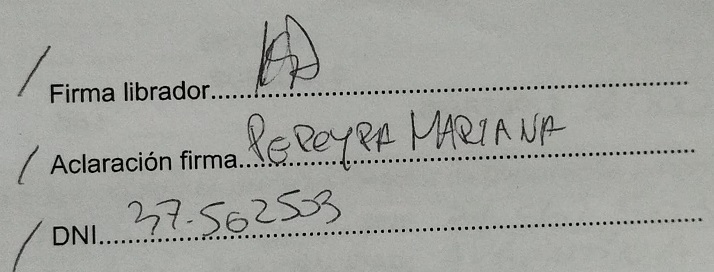 Firma librador
Aclaración firma. PEREYRA MARIANA
DNI. 37.562503